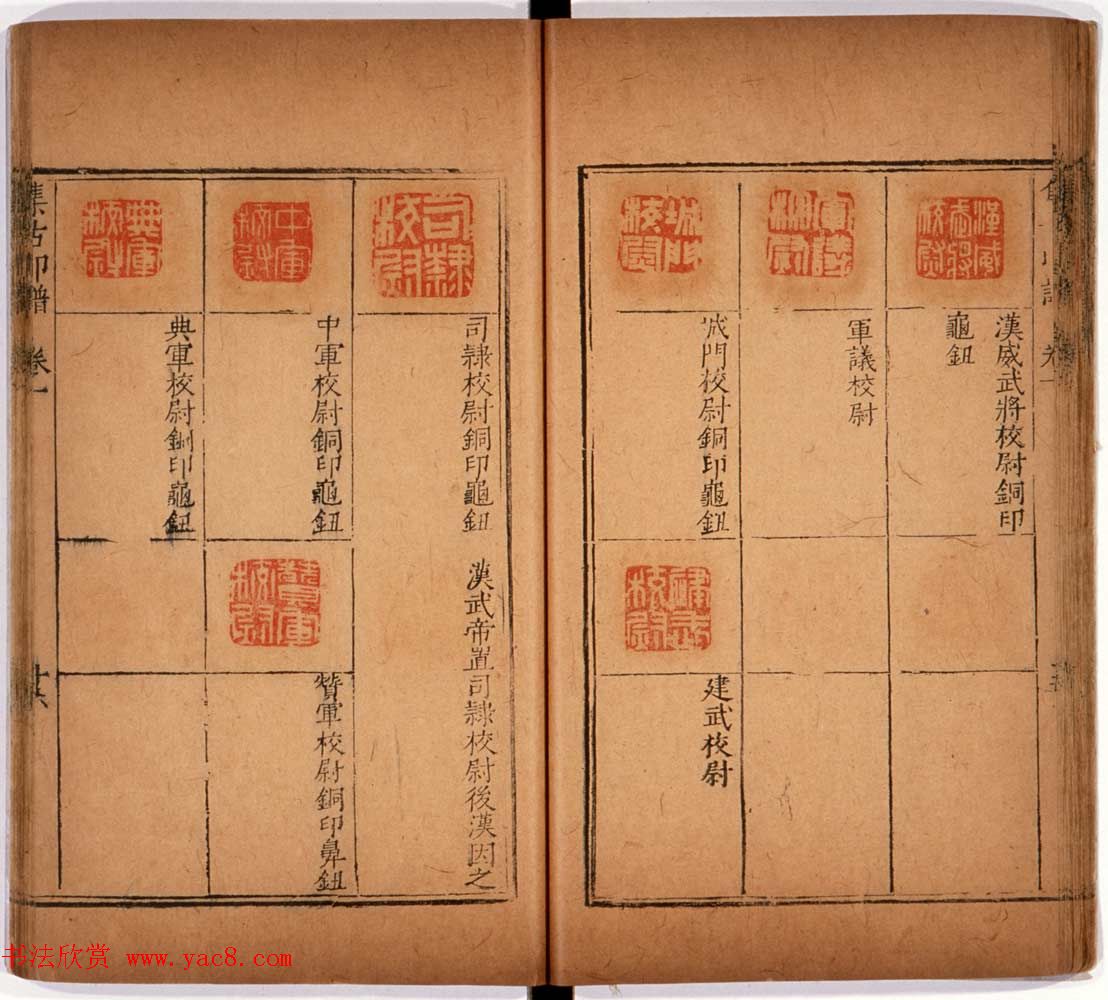 漢威武將校尉銅印
龜鈕
軍議校尉
城門校尉銅印龜鈕
建武校尉
司隸校尉
司隸校尉銅印龜鈕 漢武帝置司隸校尉後漢因之
中軍校尉
中軍校尉銅印龜鈕
贊軍校尉
贊軍校尉銅印鼻鈕
典軍校尉
典軍校尉銅印龜鈕
集古印譜 卷一
廿六
书法欣赏 www.yac8.com